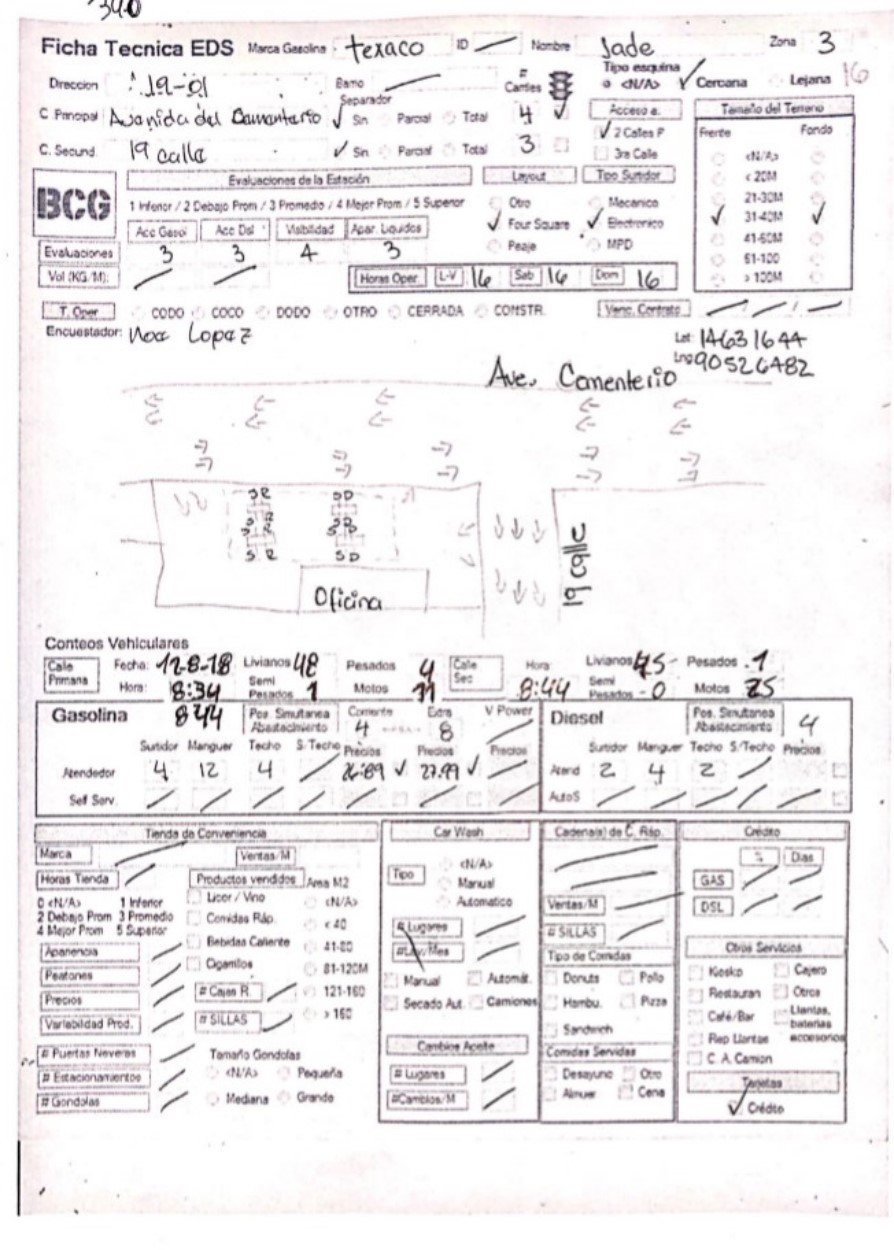 340
Ficha Tecnica EDS Marca Gasolina texaco ID Nombre Jade Zona 3
Direccion 19-01 Barrio # Carriles Tipo esquina <N/A> Cercana Lejana 16
Separador
C. Principal Avanida del Camantario Sin Parcial Total 4 Acceso a: Tamaño del Terreno
2 Calles P Frente Fondo
C. Secund. 19 calla Sin Parcial Total 3 3ra Calle <N/A>
Evaluaciones de la Estación Layout Tipo Surtidor < 20M
BCG 1 Inferior / 2 Debajo Prom / 3 Promedio / 4 Mejor Prom / 5 Superior Otro Mecanico 21-30M
Acc Gasol Acc Dsl Visibilidad Apar. Liquidos Four Square Electronico 31-40M
Evaluaciones 3 3 4 3 Peaje MPD 41-50M
51-100
Vol (KG/M): Horas Oper L-V 16 Sab 16 Dom 16 > 100M
T. Oper CODO COCO DODO OTRO CERRADA CONSTR. Venc. Contrato
Encuestador: Noe Lopez
Lat: 14631644
Lng 90526482
Ave. Comenterio
SR SD
SR SD
Oficina
19 calle
Conteos Vehiculares
Calle Primaria Fecha: 12-8-18 Livianos 48 Pesados 4 Calle Sec Hora: 8:44 Livianos 45 Pesados 1
Hora: 8:34 Semi Pesados 1 Motos 11 Semi Pesados 0 Motos 25
Gasolina 844 Pos. Simultanea Abastecimiento Corriente 4 Extra 8 V Power Diesel Pos. Simultanea Abastecimiento 4
Surtidor Manguer Techo S/Techo Precios Precios Precios Surtidor Manguer Techo S/Techo Precios
Atendedor 4 12 4 26.89 27.99 Atend 2 4 2
Self Serv. AutoS
Tienda de Conveniencia Car Wash Cadena(s) de C. Ráp. Crédito
Marca Ventas/M % Dias
Horas Tienda Productos vendidos Area M2 Tipo <N/A> GAS
0 <N/A> 1 Inferior Licor / Vino <N/A> Manual Ventas/M DSL
2 Debajo Prom 3 Promedio Comidas Ráp. < 40 Automatico # SILLAS
4 Mejor Prom 5 Superior Bebidas Caliente 41-80 # Lugares Tipo de Comidas Otros Servicios
Apariencia Cigarrillos 81-120M #Lav/Mes Donuts Pollo Kiosko Cajero
Peatones # Cajas R 121-160 Manual Automát. Hambu. Pizza Restauran Otros
Precios # SILLAS > 160 Secado Aut. Camiones Sandwich Café/Bar Llantas, baterias accesorios
Variabilidad Prod. Rep Llantas
# Puertas Neveras Tamaño Gondolas Cambios Aceite Comidas Servidas C. A. Camion
# Estacionamientos <N/A> Pequeña # Lugares Desayuno Otro Tarjetas
# Gondolas Mediana Grande #Cambios/M Almuer Cena Crédito